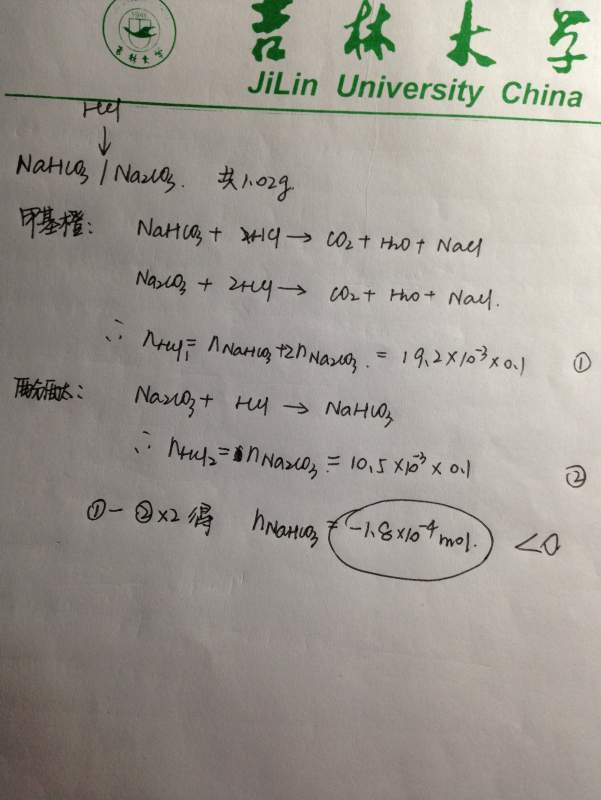 1946
吉林大学
吉林大学
JiLin University China
HCl
↓
NaHCO3 / Na2CO3. 共1.02g.
甲基橙: NaHCO3 + HCl → CO2 + H2O + NaCl
Na2CO3 + 2HCl → CO2 + H2O + NaCl.
∴ nHCl1 = nNaHCO3 + 2nNa2CO3. = 19.2×10-3×0.1 ①
酚酞: Na2CO3 + HCl → NaHCO3
∴ nHCl2 = nNa2CO3 = 10.5×10-3×0.1 ②
①-②×2 得 nNaHCO3 = -1.8×10-4 mol. <0